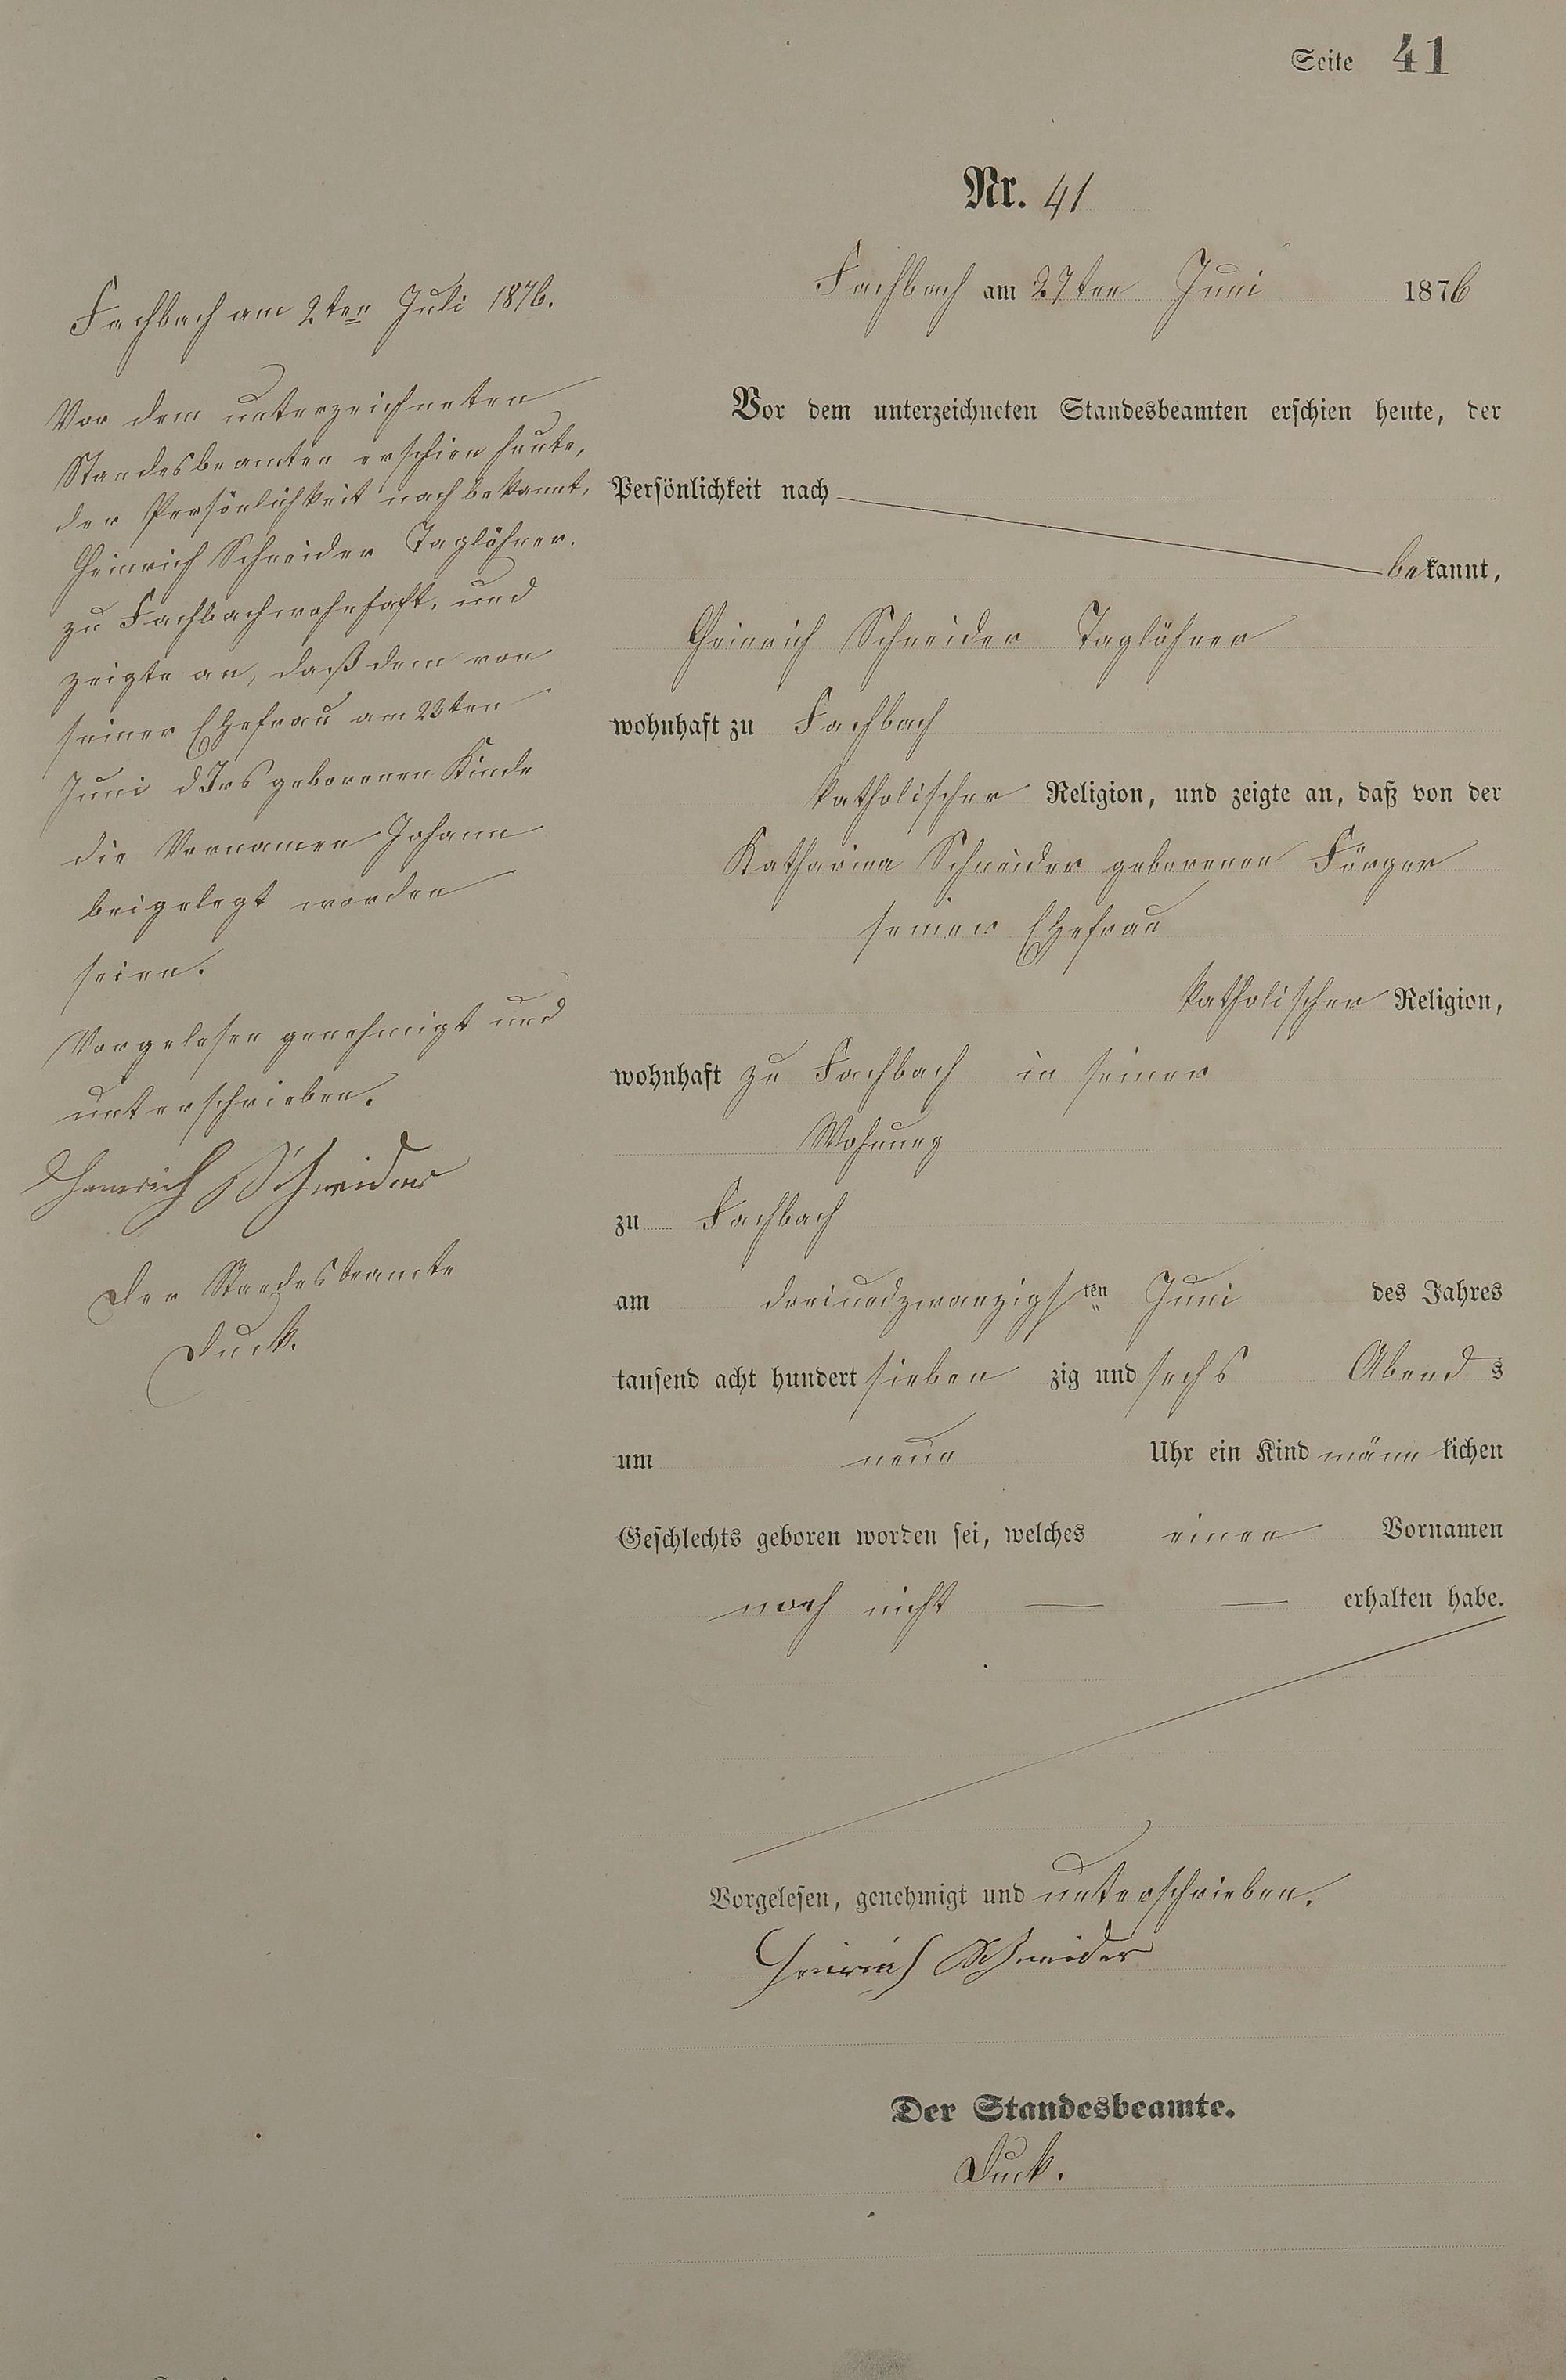 Seite 41
Nr. 41
Fachbach am 27ten Juni 1876
Vor dem unterzeichneten Standesbeamten erschien heute, der
Persönlichkeit nach
bekannt,
Heinrich Schneider Taglöhner
wohnhaft zu Fachbach
katholischer Religion, und zeigte an, daß von der
Katharina Schneider geborenen Förger
seiner Ehefrau
katholischer Religion,
wohnhaft zu Fachbach in seiner
Wohnung
zu Fachbach
am dreiundzwanzigsten Juni des Jahres
tausend acht hundert siebenzig und sechs Abends
um neun Uhr ein Kind männlichen
Geschlechts geboren worden sei, welches einen Vornamen
noch nicht — — erhalten habe.
Vorgelesen, genehmigt und unterschrieben.
Heinrich Schneider
Der Standesbeamte.
Duck.
Fachbach am 2ten Juli 1876.
Vor dem unterzeichneten
Standesbeamten erschien heute,
der Persönlichkeit nach bekannt,
Heinrich Schneider Taglöhner.
zu Fachbach wohnhaft, und
zeigte an, daß dem von
seiner Ehefrau am 23ten
Juni d Jrs geborenen Kinde
die Vornamen Johann
beigelegt worden
seien.
Vorgelesen genehmigt und
unterschrieben.
Heinrich Schneider
Der Standesbeamte
Duck.